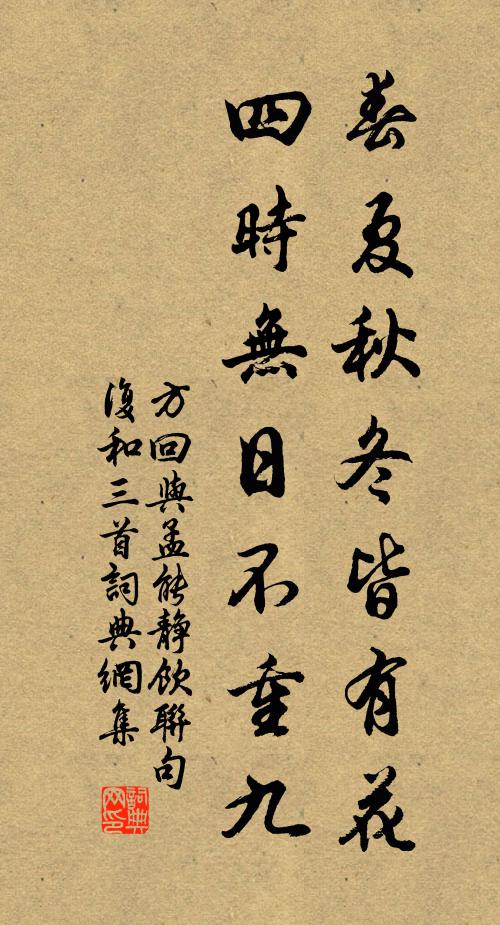 春夏秋冬皆有花
四時無日不重九
方回與孟能靜飲聯句
復和三首詞典網集
詞典網印